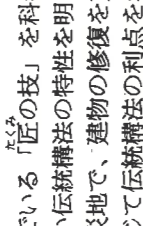 でいる「匠の技」を科
たくみ
い伝統構法の特性を明
災地で、建物の修復を
じて伝統構法の利点を